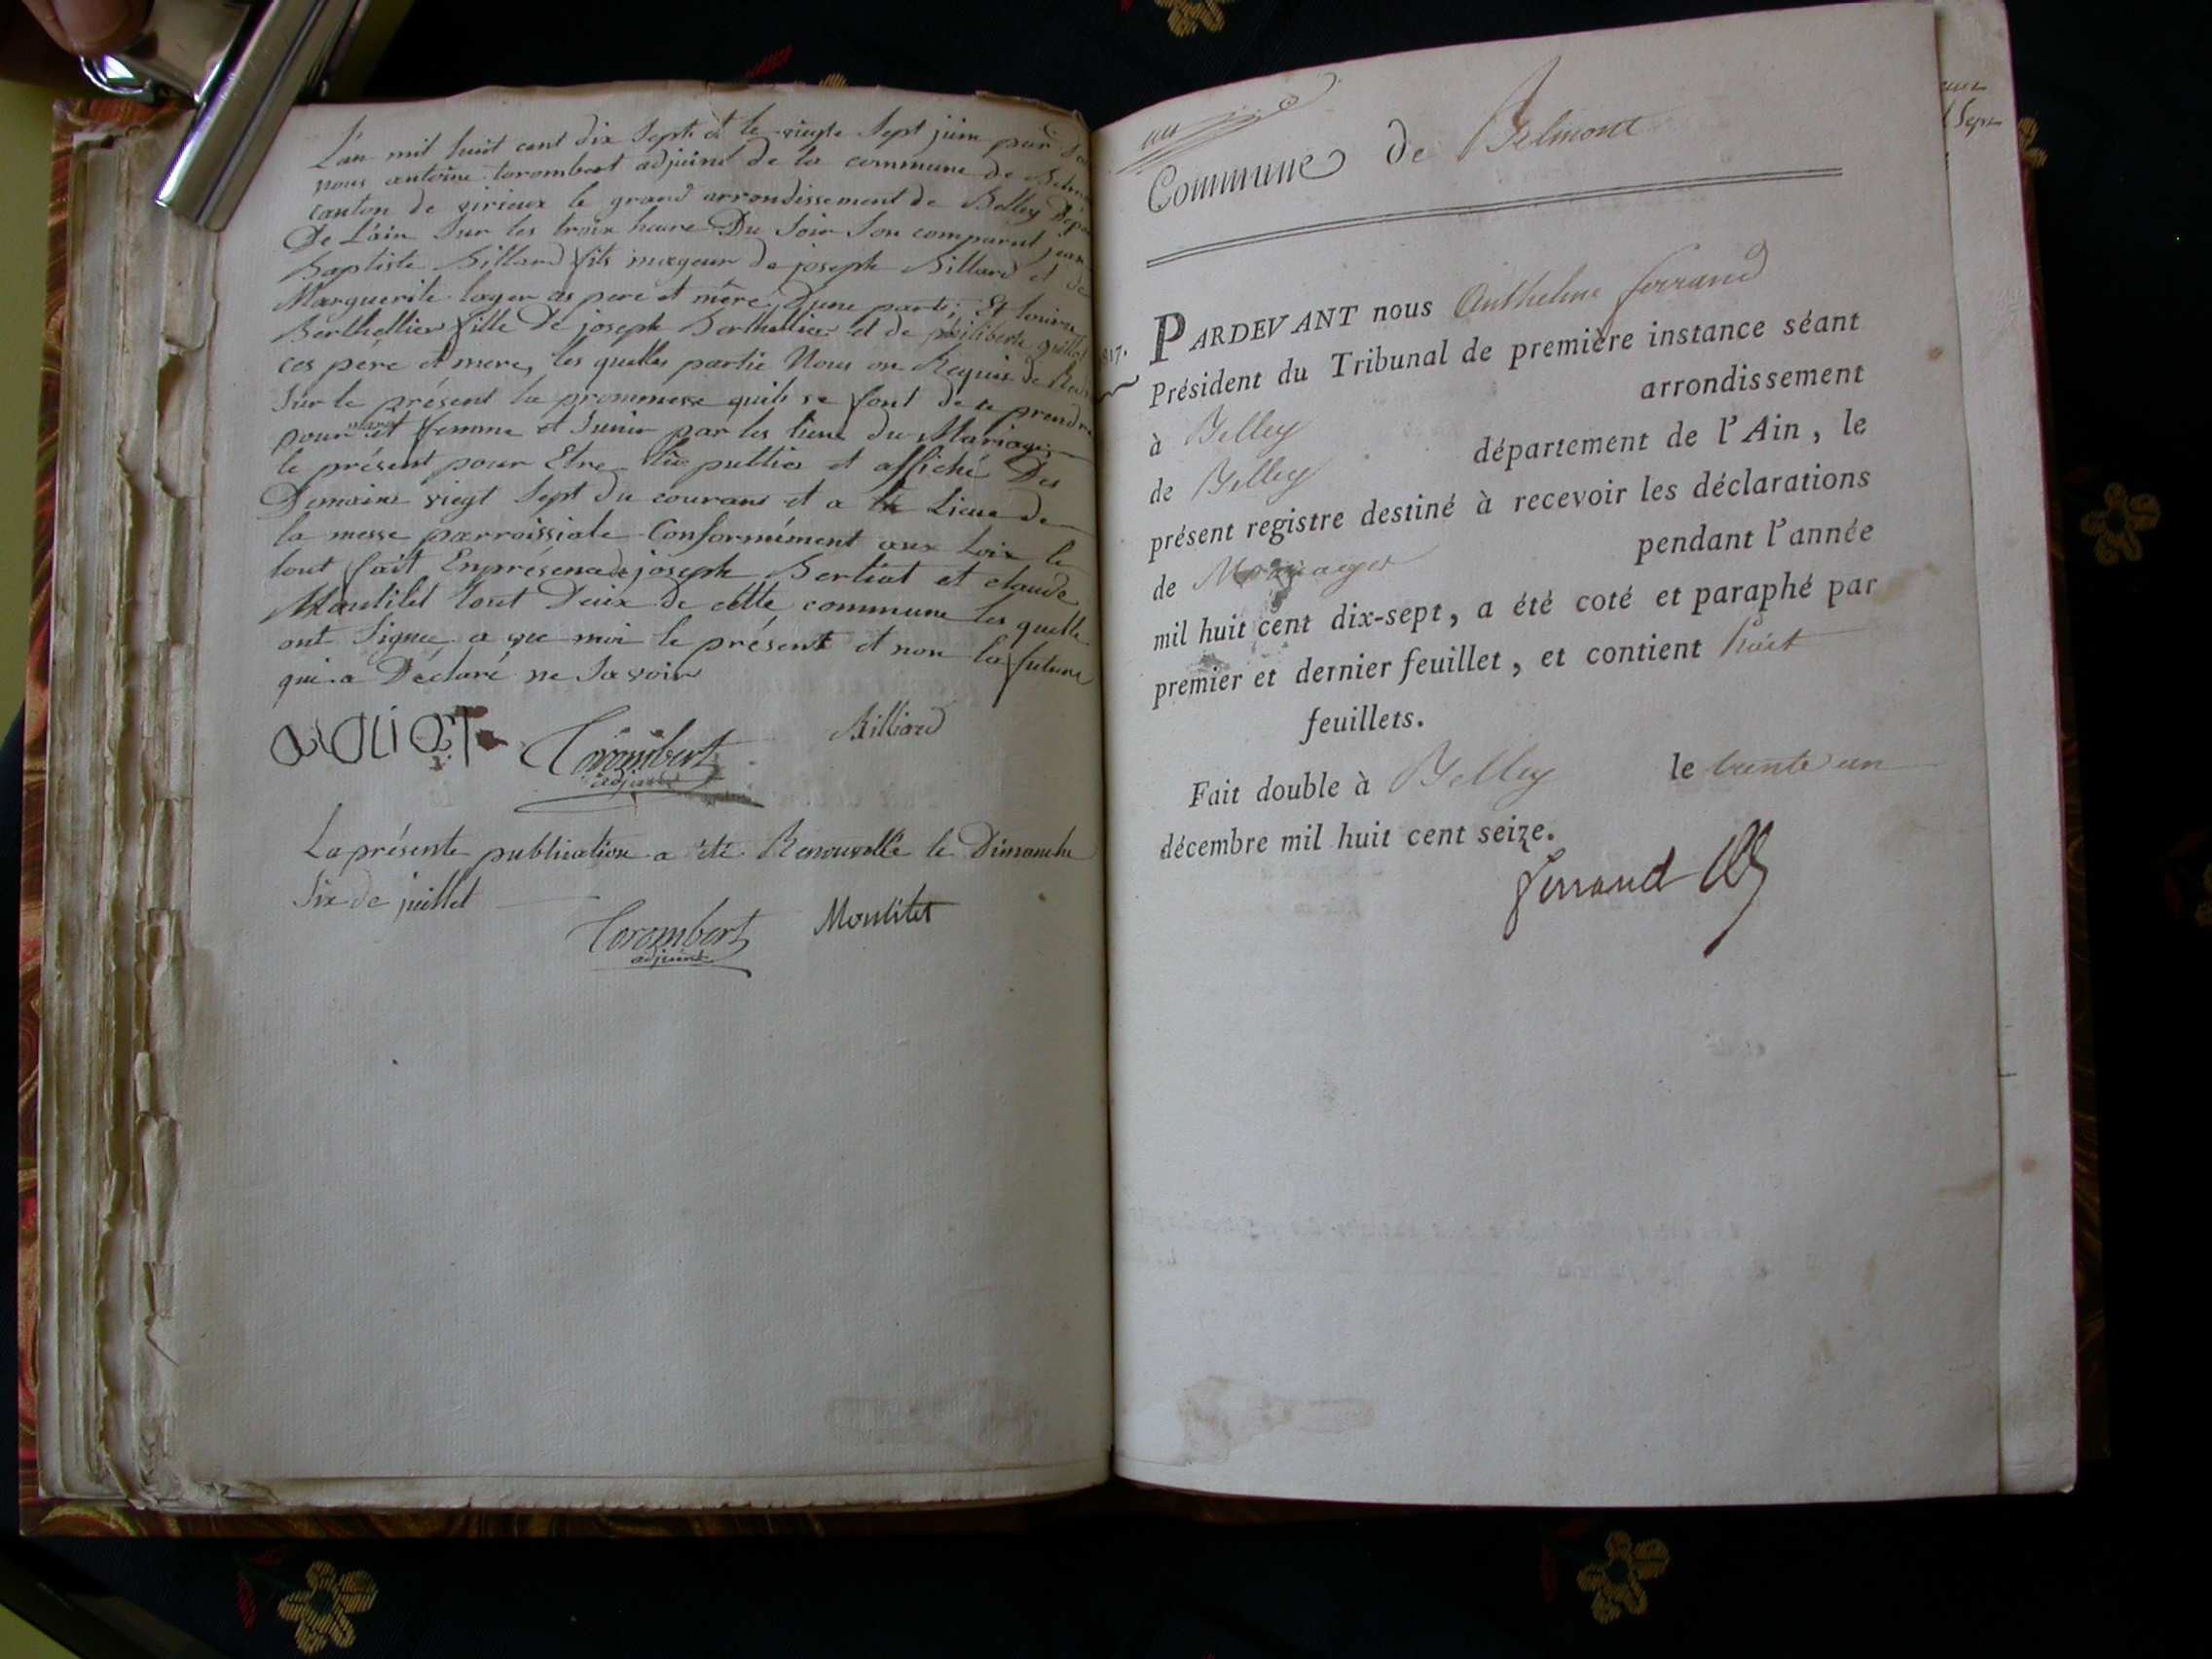 L'an mil huit cent dix Sept et le vingte Sept juin par d
nous antoine torombert adjoind de la commune de Belm
canton de virieux le grand arrondissement de Belley Dépa
De L'ain Sur les troix heure Du Soir Son comparut jean
Baptiste Billard fils mageur de joseph Billard et de
Marguerite loger as pere et mère, Dune parti, Et louise
Berthellier fille De joseph Berthellier et de philiberte guillot
ces père et mere, les quelles partie Nous on Requis de
Sur le présent la prommesse quils se font de te prendre
pour mari et femme et Sunir par les liens du Mariage;
le présent pour Etre lu publiés et affiché Des
Demaine vingt Sept du courant et a Lissue de
la messe parroissiale Conformément aux Loix le
tout fait Enprésence de joseph Bertiat et claude
Moulilet tout Deux de cette commune les quelle
ont Signée a vec moi le présent et non la future
qui a Déclaré ne Savoir
Torombert
adjoint
Billiard
La présente publication a été Renouvellé le Dimanche
Six de juillet
Torombert
adjoint
Moulilet
Commune de Belmont
PARDEVANT nous Anthelme ferrand
Président du Tribunal de première instance séant
à Belley arrondissement
de Belley département de l'Ain, le
présent registre destiné à recevoir les déclarations
de Mariages pendant l'année
mil huit cent dix-sept, a été coté et paraphé par
premier et dernier feuillet, et contient huit
feuillets.
Fait double à Belley le trente un
décembre mil huit cent seize.
ferrand